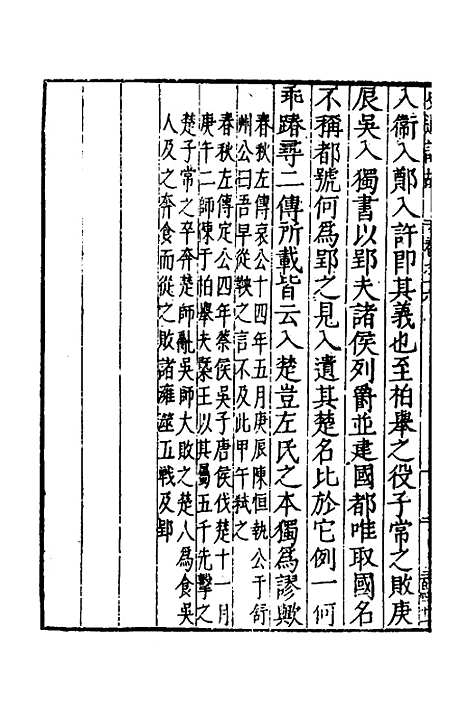 入衞入鄭入許即其義也至柏舉之役子常之敗庚
辰吳入獨書以郢夫諸侯列爵並建國都唯取國名
不稱都號何爲郢之見入遺其楚名比於它例一何
乖踳尋二傳所載皆云入楚豈左氏之本獨爲謬歟
春秋左傳哀公十四年五月庚辰陳恒執公于舒
州公曰吾早從鞅之言不及此甲午弒之
春秋左傳定公四年蔡侯吳子唐侯伐楚十一月
庚午二師陳于柏舉夫㮣王以其屬五千先擊之
楚子常之卒奔楚師亂吳師大敗之楚人爲食吳
人及之奔食而從之敗諸雍澨五戰及郢